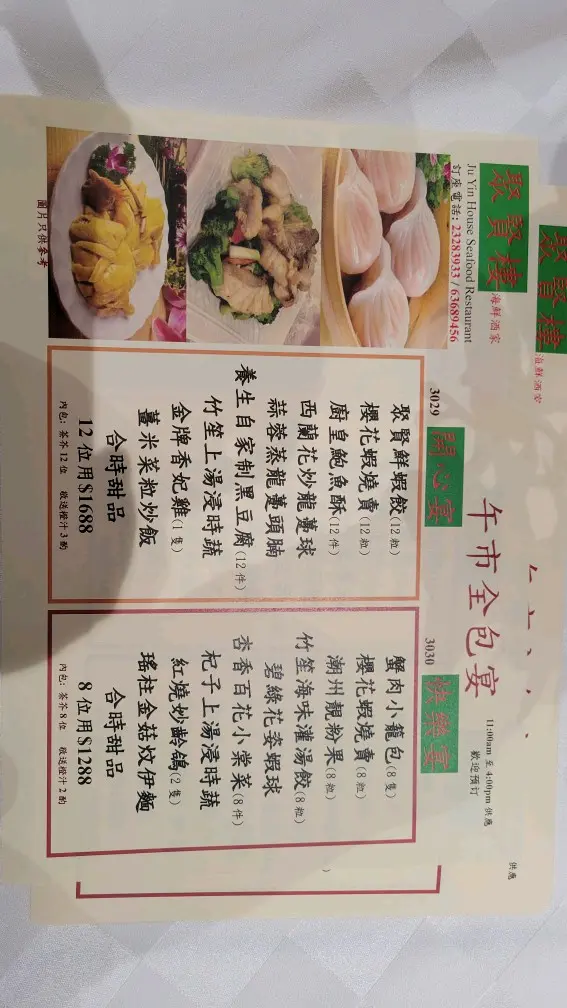 聚賢樓
海鮮酒家
Ju Yin House Seafood Restaurant
訂座電話: 23283933 / 63689456
午市全包宴
11:00am 至 4:00pm 供應
歡迎預訂
3029
開心宴
聚賢鮮蝦餃(12粒)
櫻花蝦燒賣(12粒)
廚皇鮑魚酥(12件)
西蘭花炒龍躉球
蒜蓉蒸龍躉頭腩
養生自家制黑豆腐(12件)
竹笙上湯浸時蔬
金牌香妃雞(1隻)
薑米菜粒炒飯
合時甜品
12位用$1688
內包: 茶芥12位 敬送橙汁3酌
3030
快樂宴
蟹肉小籠包(8隻)
櫻花蝦燒賣(8粒)
潮州靚粉果(8粒)
竹笙海味灌湯餃(8粒)
碧綠花姿蝦球
杏香百花小棠菜(8件)
杞子上湯浸時蔬
紅燒妙齡鴿(2隻)
瑤柱金菇炆伊麵
合時甜品
8位用$1288
內包: 茶芥8位 敬送橙汁2酌
圖片只供參考
聚賢樓
海鮮酒家
供應